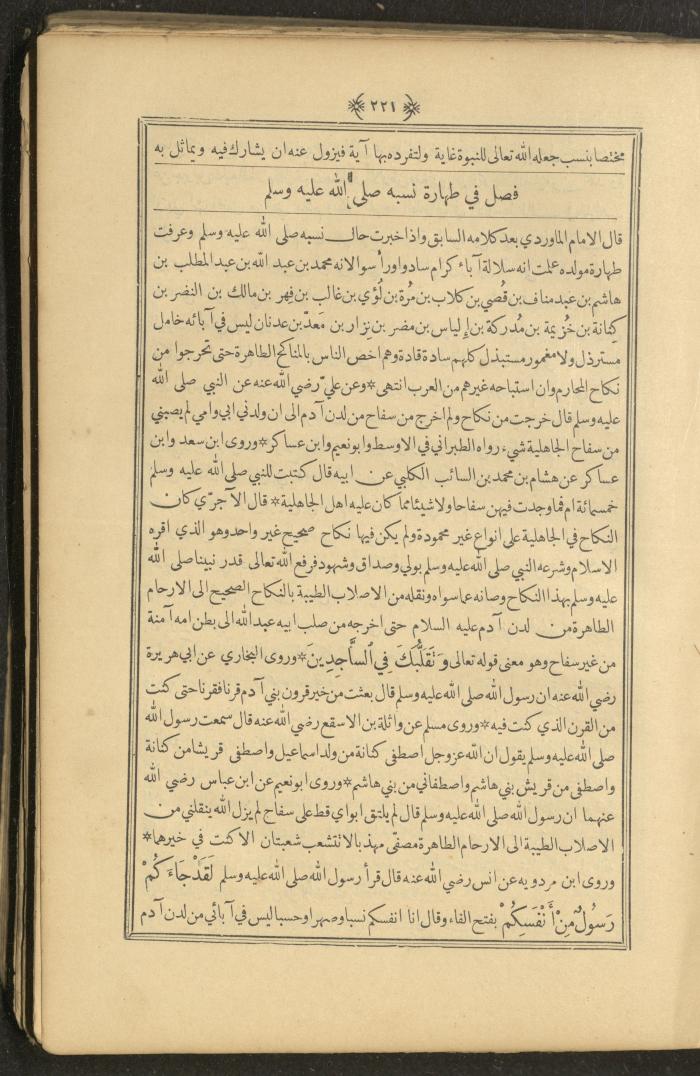 ﴿ ٢٢١ ﴾
مختصا بنسب جعله الله تعالى للنبوة غاية ولتفرده بها آية فيزول عنه ان يشارك فيه ويماثل به
فصل في طهارة نسبه صلى الله عليه وسلم
قال الامام الماوردي بعد كلامه السابق واذا خبرت حال نسبه صلى الله عليه وسلم وعرفت
طهارة مولده علمت انه سلالة آباء كرام سادوا ورأسوا لانه محمد بن عبد الله بن عبد المطلب بن
هاشم بن عبد مناف بن قُصي بن كلاب بن مُرة بن لُؤي بن غالب بن فِهر بن مالك بن النضر بن
كِنانة بن خُزيمة بن مُدركة بن إلياس بن مضر بن نِزار بن مَعدّ بن عدنان ليس في آبائه خامل
مسترذل ولا مغمور مستبذل كلهم سادة قادة وهم اخص الناس بالمناكح الطاهرة حتى تحرجوا من
نكاح المحارم وان استباحه غيرهم من العرب انتهى * وعن عليّ رضي الله عنه عن النبي صلى الله
عليه وسلم قال خرجت من نكاح ولم اخرج من سفاح من لدن آدم الى ان ولدني ابي وامي لم يصبني
من سفاح الجاهلية شيء رواه الطبراني في الاوسط وابو نعيم وابن عساكر * وروى ابن سعد وابن
عساكر عن هشام بن محمد بن السائب الكلبي عن ابيه قال كتبت للنبي صلى الله عليه وسلم
خمسمائة ام فما وجدت فيهن سفاحا ولا شيئا مما كان عليه اهل الجاهلية * قال الآجرّي كان
النكاح في الجاهلية على انواع غير محمودة ولم يكن فيها نكاح صحيح غير واحد وهو الذي اقره
الاسلام وشرعه النبي صلى الله عليه وسلم بولي وصداق وشهود فرفع الله تعالى قدر نبينا صلى الله
عليه وسلم بهذا النكاح وصانه عما سواه ونقله من الاصلاب الطيبة بالنكاح الصحيح الى الارحام
الطاهرة من لدن آدم عليه السلام حتى اخرجه من صلب ابيه عبد الله الى بطن امه آمنة
من غير سفاح وهو معنى قوله تعالى وَتَقَلُّبَكَ فِي ٱلسَّاجِدِينَ * وروى البخاري عن ابي هريرة
رضي الله عنه ان رسول الله صلى الله عليه وسلم قال بعثت من خير قرون بني آدم قرنا فقرنا حتى كنت
من القرن الذي كنت فيه * وروى مسلم عن واثلة بن الاسقع رضي الله عنه قال سمعت رسول الله
صلى الله عليه وسلم يقول ان الله عز وجل اصطفى كنانة من ولد اسماعيل واصطفى قريشا من كنانة
واصطفى من قريش بني هاشم واصطفاني من بني هاشم * وروى ابو نعيم عن ابن عباس رضي الله
عنهما ان رسول الله صلى الله عليه وسلم قال لم يلتق ابواي قط على سفاح لم يزل الله ينقلني من
الاصلاب الطيبة الى الارحام الطاهرة مصفّى مهذبا لا تتشعب شعبتان الا كنت في خيرها *
وروى ابن مردويه عن انس رضي الله عنه قال قرأ رسول الله صلى الله عليه وسلم لَقَدْ جَاءَكُمْ
رَسُولٌ مِنْ أَنْفَسِكُمْ بفتح الفاء وقال انا انفسكم نسبا وصهرا وحسبا ليس في آبائي من لدن آدم